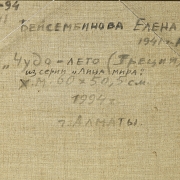 -94
Бейсембинова Елена
1941 г.
„Чудо-лето (Греция)
из серии „Лица мира":
х.м 60 х 50,5 см.
1994 г
г. Алматы